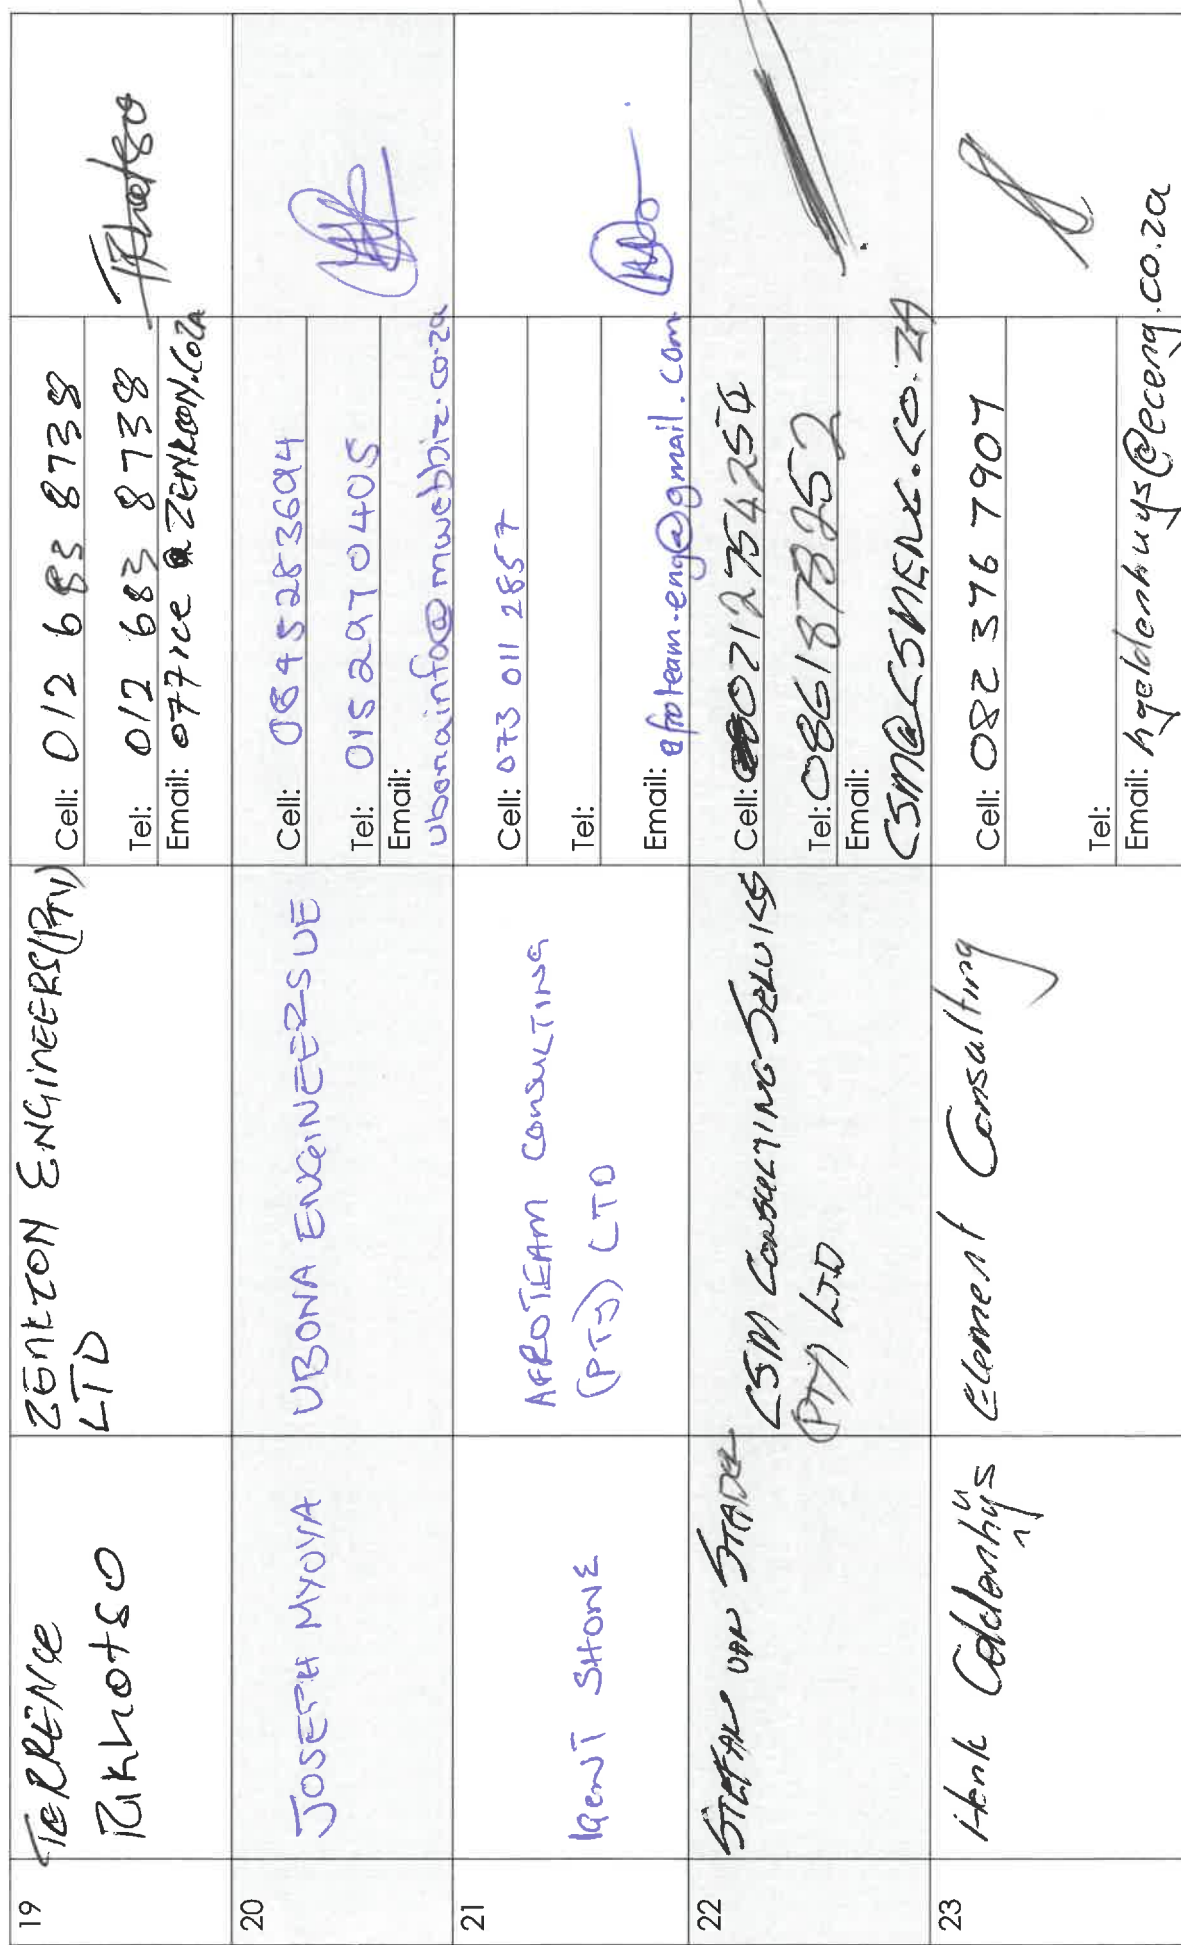 19
TERRENCE
Rikhotso
ZENKZON ENGINEERS (PTY)
LTD
Cell: 012 683 8738
Tel: 012 683 8738
Email: office@ZENKOON.CoZA
20
JOSEPH MYOYA
UBONA ENGINEERS UE
Cell: 0845283694
Tel: 0152970405
Email:
ubonainfo@mwebbiz.co.za
21
KENT SHONE
AFROTEAM CONSULTING
(PTY) LTD
Cell: 073 011 2857
Tel:
Email: afroteam.eng@gmail.com
22
STEFAN VAN STADE
CSM CONSULTING SERVICES
(PTY) LTD
Cell:
Tel: 0861878252
Email:
CSM@CSMENG.CO.ZA
23
Henk Geldenhuys
Element Consulting
Cell: 082 376 7907
Tel:
Email: hgeldenhuys@eceng.co.za